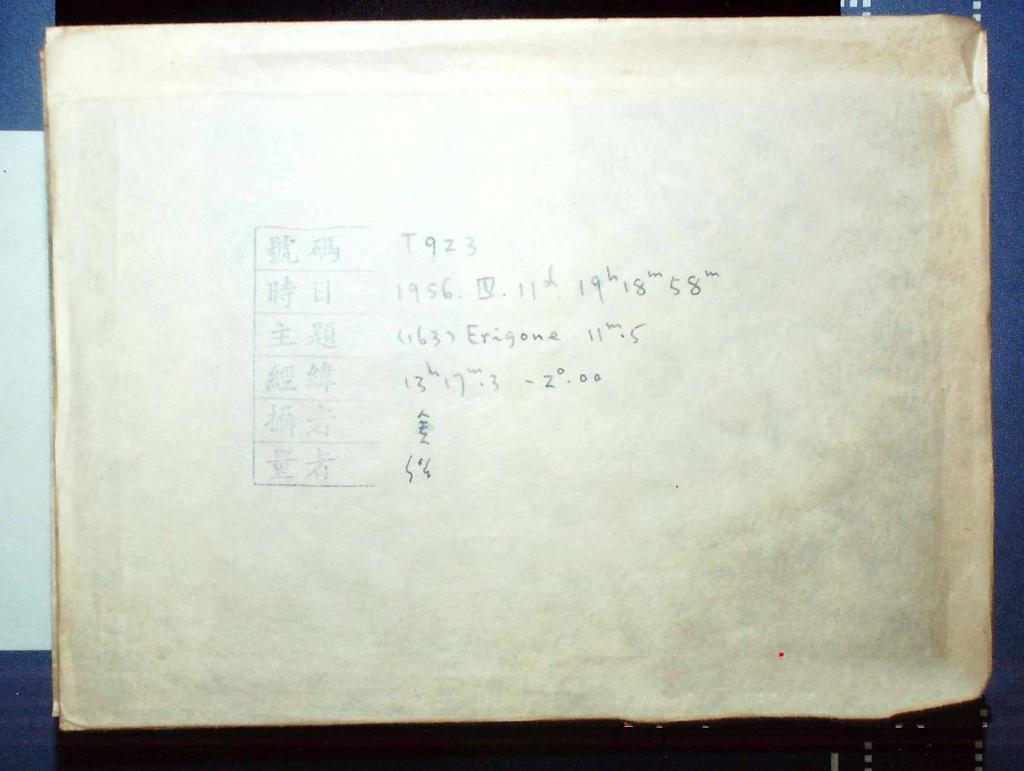 號碼 T923
時日 1956. Ⅳ. 11d 19h18m58m
主題 (163) Erigone 11m.5
經緯 13h17m.3 -2°.00
攝者
量者